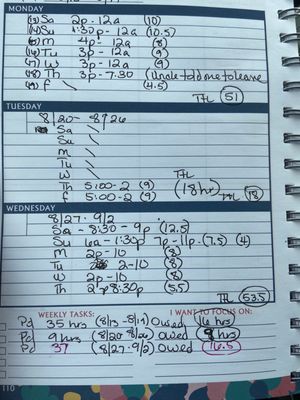 MONDAY
(13) Sa 2p - 12a (10)
(14) Su 1:30p - 12a (10.5)
(15) M 4p - 12a (8)
(16) Tu 3p - 12a (9)
(17) W 3p - 12a (9)
(18) Th 3p - 7:30 (Uncle told me to leave
(19) F (4.5)
TTL 51
TUESDAY
8/20 - 8/26
Sa
Su
M
Tu
W
Th 5:00-2 (9)
F 5:00-2 (9) (18hr) TTL 18
WEDNESDAY
8/27 - 9/2
Sa - 8:30 - 9p (12.5)
Su 6a - 1:30p 7p - 11p (7.5) (4)
M 2p - 10 (8)
Tu 2 - 10 (8)
W 2p - 10 (8)
Th 2p 8:30p (5.5)
TTL 53.5
WEEKLY TASKS: I WANT TO FOCUS ON:
Pd 35 hrs (8/13 - 8/19) Owed 16 hrs
Pd 9 hrs (8/20 - 8/26) Owed 9 hrs
Pd 37 (8/27 - 9/2) Owed 16.5
110